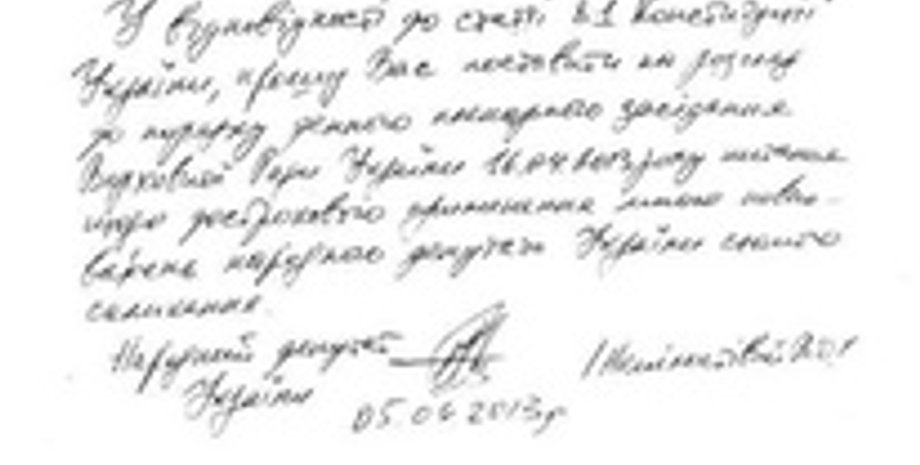 У відповідності до статті 81 Конституції
України, прошу Вас поставити на розгляд
до порядку денного пленарного засідання
Верховної Ради України 16.04.2013 року питання
щодо дострокового припинення мною повно-
важень народного депутата України сьомого
скликання.
Народний депутат
України
05.04.2013 р